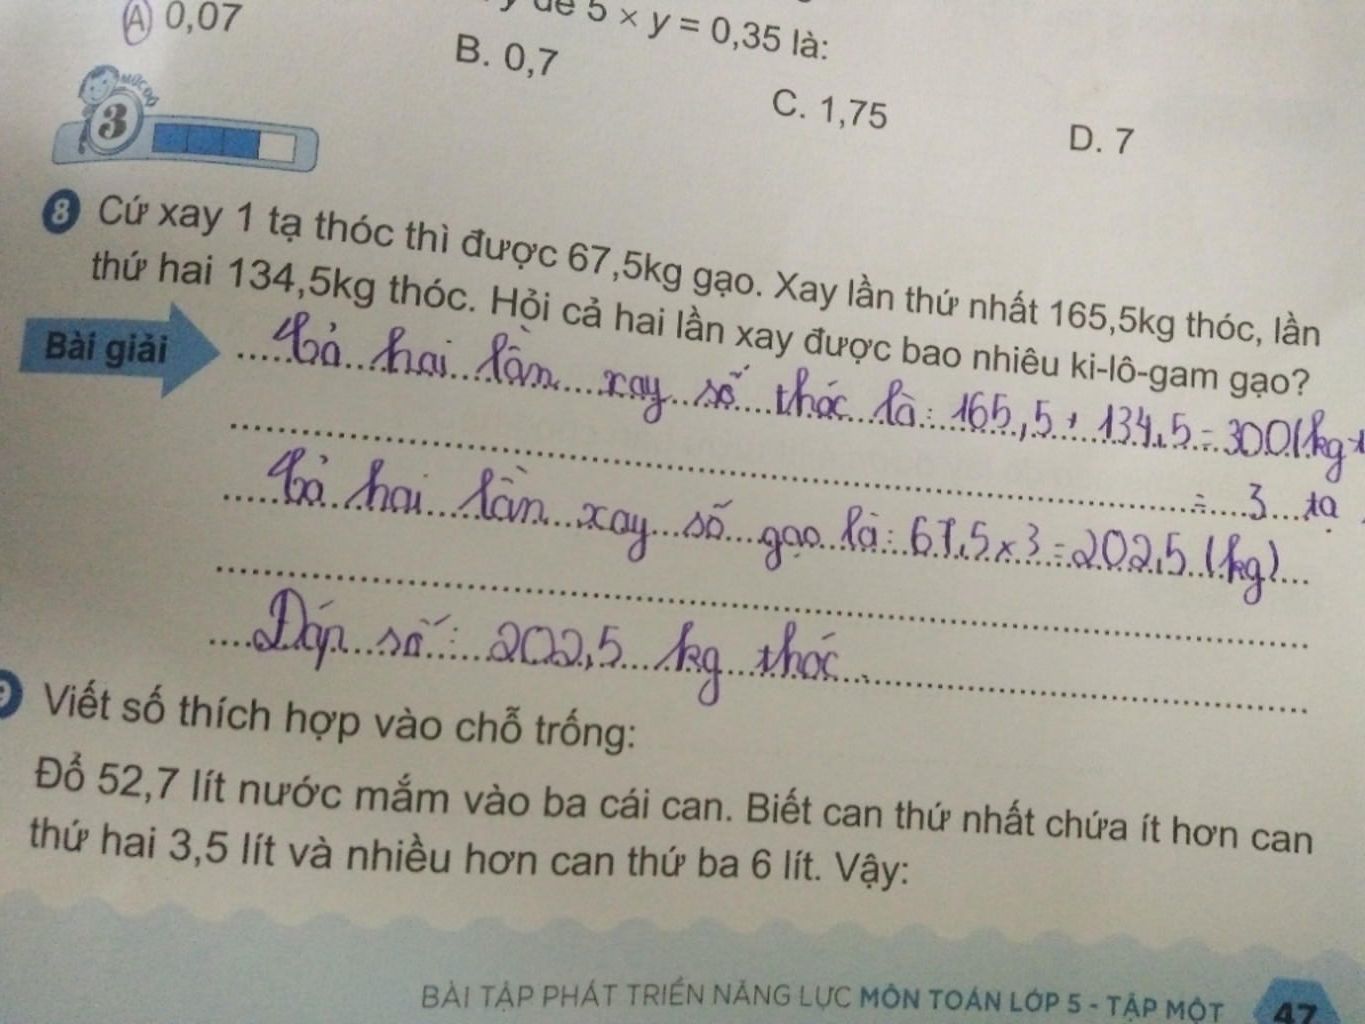 y để 5 × y = 0,35 là:
A 0,07
B. 0,7
C. 1,75
D. 7
3
8 Cứ xay 1 tạ thóc thì được 67,5kg gạo. Xay lần thứ nhất 165,5kg thóc, lần
thứ hai 134,5kg thóc. Hỏi cả hai lần xay được bao nhiêu ki-lô-gam gạo?
Bài giải
Cả hai lần xay số thóc là: 165,5 + 134,5 = 300 (kg)
= 3 tạ
Cả hai lần xay số gạo là: 67,5 × 3 = 202,5 (kg)
Đáp số: 202,5 kg thóc
9 Viết số thích hợp vào chỗ trống:
Đổ 52,7 lít nước mắm vào ba cái can. Biết can thứ nhất chứa ít hơn can
thứ hai 3,5 lít và nhiều hơn can thứ ba 6 lít. Vậy:
BÀI TẬP PHÁT TRIỂN NĂNG LỰC MÔN TOÁN LỚP 5 - TẬP MỘT 47